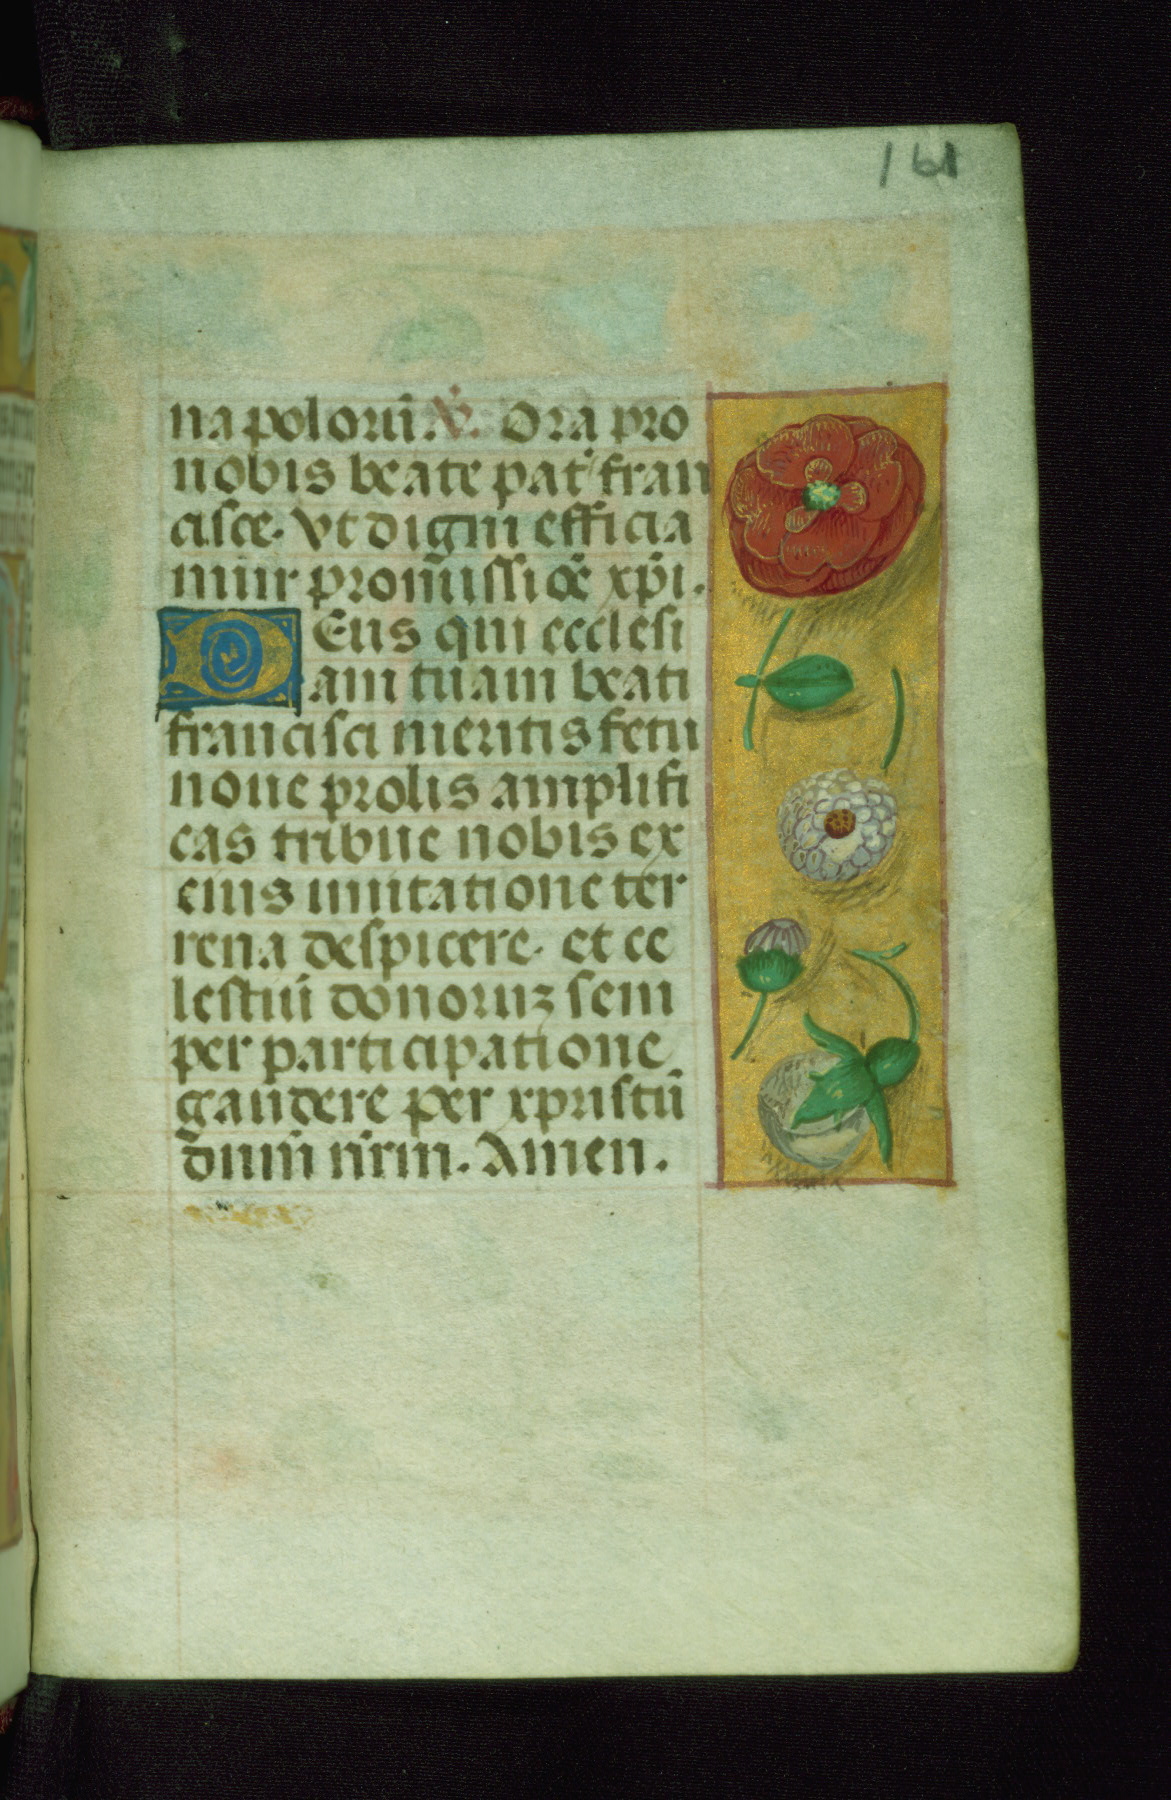 161
na polorū. ℣. Ora pro
nobis beate pat̄ fran
cisce. Vt digni efficia
mur promissiōe xp̄i.
Deus qui ecclesi
am tuam beati
francisci meritis fetu
noue prolis amplifi
cas tribue nobis ex
eius imitatione ter
rena despicere. et ce
lestiū donoruꝫ sem
per participatione
gaudere per xpristū
dn̄m nr̄m. Amen.